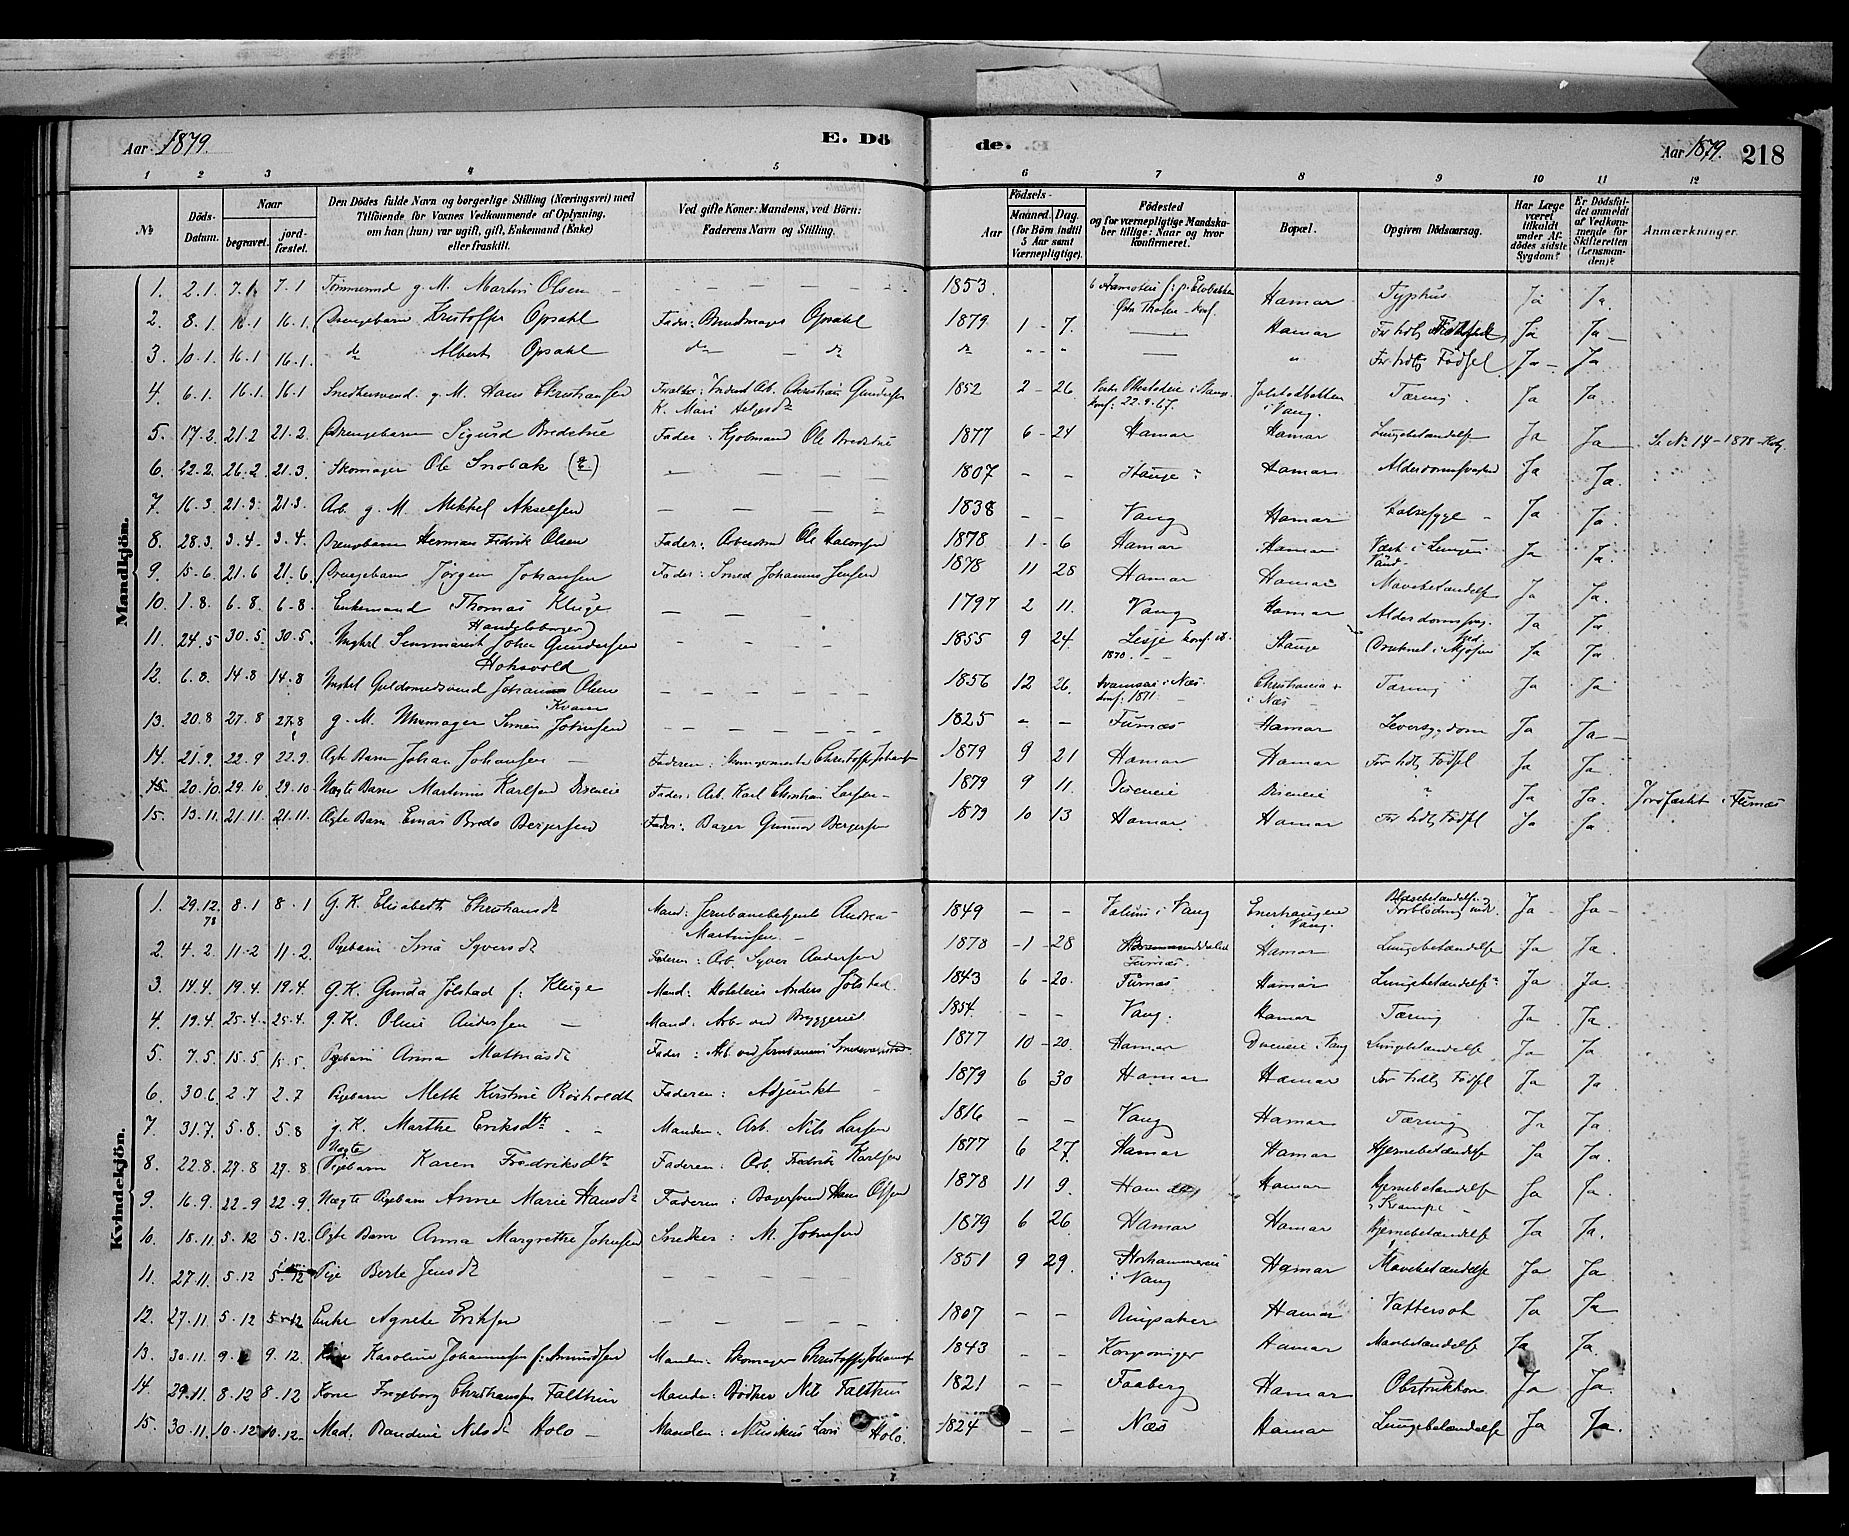 Aar 1879. E. Dö
de. Aar 1879. 218
1 2 3 4 5 6 7 8 9 10 11 12
No
Döds-Datum.
Naar
begravet.
jord-fæstet.
Den Dödes fulde Navn og borgerlige Stilling (Næringsvei) med
Tilföiende for Voxnes Vedkommende af Oplysning,
om han (hun) var ugift, gift, Enkemand (Enke)
eller fraskilt.
Ved gifte Koner: Mandens, ved Börn:
Faderens Navn og Stilling.
Födsels-
Aar
Maaned. Dag.
(for Börn indtil
5 Aar samt
Værnepligtige).
Födested
og for værnepligtige Mandska-
ber tillige: Naar og hvor
konfirmeret.
Bopæl.
Opgiven Dödsaarsag.
Har Læge
været
tilkaldt
under Af-
dödes sidste
Sygdom?
Er Dödsfal-
det anmeldt
af Vedkom-
mende for
Skifteretten
(Lensman-
den)?
Anmærkninger.
Mandkjön.
1. 2.1. 7.1 7.1 g. M. Martin Olsen 1853. Hamar Typhus Ja Ja.
2. 8.1. 16.1 16.1. Drengebarn Kristoffer Opsahl Fader: Opsahl 1879 1 - 7. Hamar For tidlig Födsel Ja Ja
3. 10.1. 16.1 16.1. do Albert Opsahl do - do do " - " " For tidlig Födsel Ja Ja
4. 6.1. 16.1 16.1 Snedkersvend g. M. Hans Christiansen Christian Gundersen 1852 2 - 26 Tæring Ja Ja
K. Mari konf: 22.9.67. i Vang.
5. 17.2. 21.2 21.2. Drengebarn Sigurd Bredstue Fader: Ole Bredstue 1877 6 - 24 Hamar Hamar Lungebetændelse Ja Ja Se No 14 - 1878
6. 22.2. 26.2 21.3. Skomager Ole 1807 - - Stange Hamar Ja Ja.
7. 16.3. 21.3. 21.3. Arb. g. M. Mikkel Akselsen 1838 - - Vang Hamar Ja Ja.
8. 28.3. 3.4. 3.4. Drengebarn Herman Fredrik Olsen Fader: Ole 1878 1 - 6 Hamar Hamar Ja Ja.
9. 15.6. 21.6 21.6. Drengebarn Jörgen Johansen Fader: Smed Johannes Jensen 1878 11 28 Hamar Hamar Mavebetændelse Ja Ja.
10. 1.8. 6.8. 6.8. Enkemand Thomas Kluge 1797 2 11. Vang Hamar Ja Ja.
Handelsborger
11. 24.5 30.5. 30.5. Ungkl. Seminarist Johan Gundersen 1855 9 24. Lesje konf. Stange Druknet i Mjösen Ja Ja.
Hoksvold 1870.
12. 6.8. 14.8 14.8 Ungkl Guldsmedsvend Johannes Olsen 1856 12 26. i Næs Christiania Tæring Ja Ja
Kvam konf: 1871. i Næs
13. 20.8 27.8 27.8 g. M. Uhrmager Simen Johnsen 1825 - - Furnæs Hamar Leversygdom Ja Ja
14. 21.9. 22.9 22.9. Ægte Barn Johan Johansen Faderen: 1879 9 21 Hamar Hamar For tidlig Födsel Ja Ja.
15. 20.10. 29.10 29.10 Uægte Barn Martinius Karlsen Diseneie Fader: Arb. Karl Christian Larsen 1879 9 11. Diseneie Diseneie " Ja Ja. Jordfæstet i Furnæs
15. 13.11. 21.11. 21.11. Ægte Barn Bredo Bergersen Fader: Bager Gunnar Bergersen 1879 10 13 Hamar Hamar For tidlig Födsel Ja Ja
Kvindekjön.
1. 29.12. 78 8.1 8.1 G. K. Elisabeth Christiansdt Mand: Jernbanebetjent Andreas Martinsen 1849 - - i Vang i Vang. Ja Ja
2. 4.2. 11.2 11.2. Pigebarn Syversdt Faderen: Arb. Syver Andersen 1878 1 - 28 Furnæs. Hamar Lungebetændelse Ja Ja.
3. 14.4. 19.4. 19.4. G. K. Gunda Jölstad f: Kluge Mand: Anders Jölstad. 1843 6 - 20. Furnæs Hamar Lungebetændelse Ja Ja.
4. 19.4. 25.4. 25.4. g. K. Oline Andersen Mand: Arb. ved Bryggeriet 1854. - - Vang. Hamar Tæring Ja Ja.
5. 7.5. 15.5 15.5. Pigebarn Anna Mathiasdt Fader: Arb. ved Jernbanens 1877 10 - 20. Hamar i Vang Lungebetændelse Ja Ja
6. 30.6. 2.7 2.7 Pigebarn Mette Kirstine Faderen: Adjunkt 1879 6 30 Hamar Hamar For tidlig Födsel Ja Ja.
7. 31.7. 5.8. 5.8 g. K. Marthe Eriksdtr. Manden: Arb. Nils Larsen 1816 - - Vang Hamar Tæring Ja Ja.
8. 22.8. 29.8 29.8 Uægte Pigebarn Karen Fredriksdtr Faderen: Arb. Fredrik Karlsen 1877 6 27. Hamar Hamar Hjernebetændelse Ja Ja.
9. 16.9. 22.9 22.9 Uægte Pigebarn Anne Marie Hansdt Faderen: Bagersvend Hans Olsen 1878 11 9. Hamar Hamar Hjernebetændelse Ja Ja.
& Krampe
10. 18.11. 5.12 5.12. Ægte Barn Anna Margrethe Johnsen Snedker: M. Johnsen 1879 6 26 Hamar Hamar Hjernebetændelse Ja Ja.
11. 27.11. 5.12 5.12 Pige Berte Jensdt 1851 9 29. i Vang Hamar Mavebetændelse Ja Ja.
12. 27.11. 5.12 5.12 Enke Agnete Eriksen 1807 - - Ringsaker Hamar Vattersot Ja Ja
13. 30.11. 9. 9.12 Kone Karoline Johannesen f: Amundsen Manden: Skomager Christoffer Johansen 1843 - - Hamar Mavebetændelse Ja Ja.
14. 29.11. 8.12 8.12 Kone Ingeborg Christiansen Falthin Manden: Bödker Nils Falthin 1821 - - Faaberg Hamar Obstruktion Ja Ja.
15. 30.11. 10.12 10.12 Mad. Randine Nilsdt Holo Manden: Musikus Lars Holo. 1824 - - Næs Hamar Lungebetændelse Ja Ja.